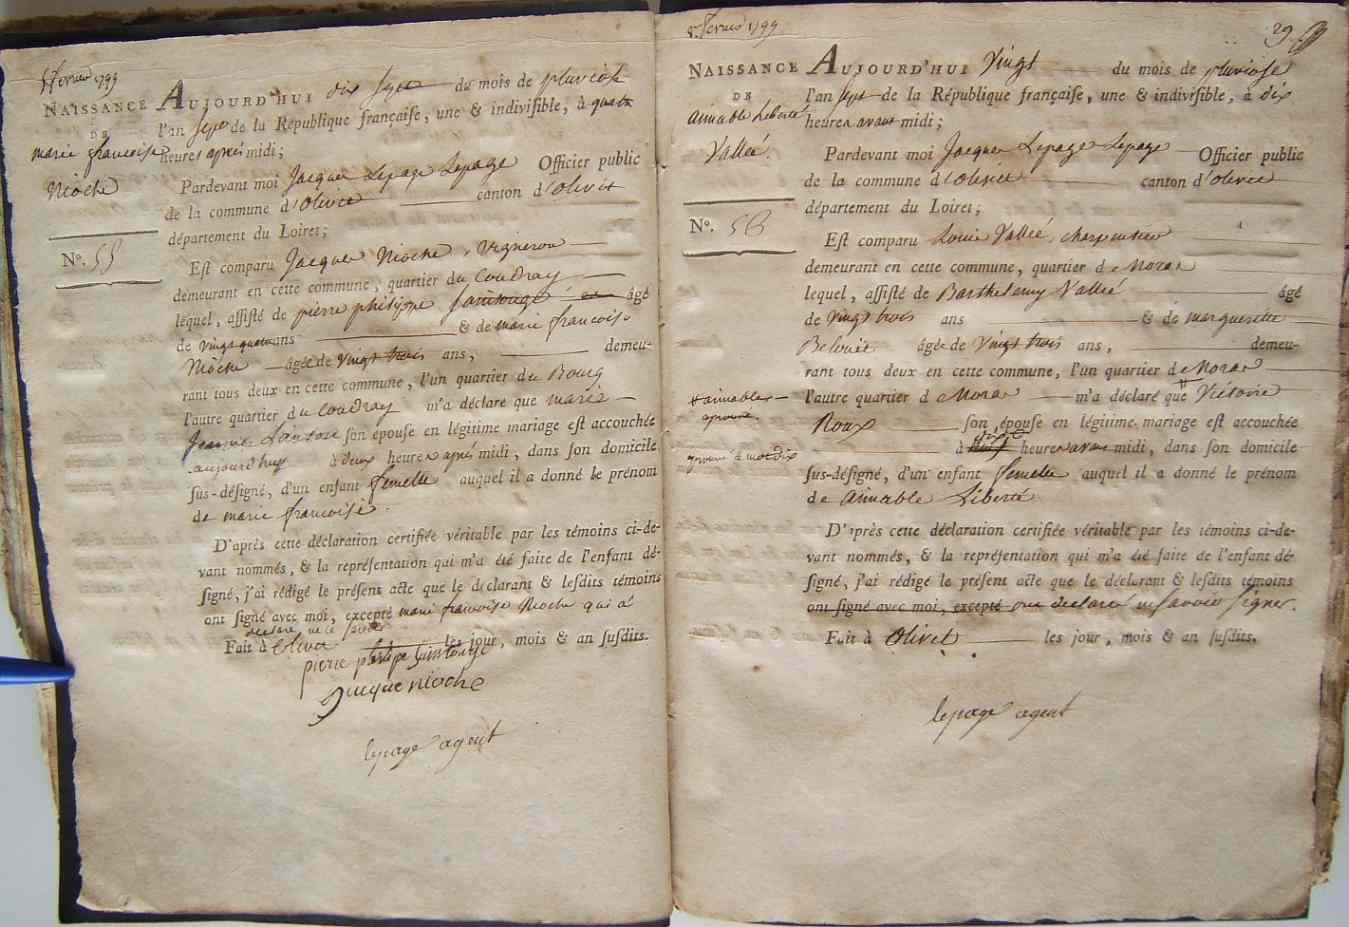 5 fevrier 1799
NAISSANCE
DE
marie francoise
Nioche
No. 55
AUJOURD'HUI dix sept du mois de pluviose
l'an sept de la République françaiſe, une & indiviſible, à quatre
heures aprés midi;
Pardevant moi Jacques Lepage Lepage Officier public
de la commune d'Olivet canton d'Olivet
département du Loiret;
Eſt comparu Jacques Nioche, Vigneron
demeurant en cette commune, quartier du Coudray
lequel, aſſiſté de pierre philippe Saintonge âgé
de vingt quatre ans & de marie francoise
Nioche âgée de vingt trois ans, demeu-
rant tous deux en cette commune, l'un quartier du Bourg
l'autre quartier du Coudray m'a déclaré que marie
ſon épouſe en légitime mariage eſt accouchée
aujourd'huy à deux heures aprés midi, dans ſon domicile
ſus-déſigné, d'un enfant femelle auquel il a donné le prénom
de marie francoise.
D'après cette déclaration certifiée véritable par les témoins ci-de-
vant nommés, & la repréſentation qui m'a été faite de l'enfant dé-
ſigné, j'ai rédigé le préſent acte que le déclarant & leſdits témoins
ont ſigné avec moi, excepté marie francoise Nioche qui a
declaré ne le savoir
Fait à Olivet les jour, mois & an ſuſdits.
pierre philipe Saintonge
Jacque nioche
lepage agent
8 fevrier 1799
29
NAISSANCE
DE
Aimable Liberté
Vallée.
No. 56
AUJOURD'HUI Vingt du mois de pluviose
l'an sept de la République françaiſe, une & indiviſible, à dix
heures avant midi;
Pardevant moi Jacques Lepage Lepage Officier public
de la commune d'Olivet canton d'Olivet
département du Loiret;
Eſt comparu Louis Vallée, charpentier
demeurant en cette commune, quartier de
lequel, aſſiſté de Barthelemy Vallée âgé
de vingt trois ans & de marguerite
âgée de vingt trois ans, demeu-
rant tous deux en cette commune, l'un quartier de
l'autre quartier de m'a déclaré que Victoire
Roux ſon épouſe en légitime mariage eſt accouchée
à heures avant midi, dans ſon domicile
approuvé à mot dix
ſus-déſigné, d'un enfant femelle auquel il a donné le prénom
de Aimable Liberté
D'après cette déclaration certifiée véritable par les témoins ci-de-
vant nommés, & la repréſentation qui m'a été faite de l'enfant dé-
ſigné, j'ai rédigé le préſent acte que le déclarant & leſdits témoins
ont ſigné avec moi, excepté ont declaré ne savoir signer.
Fait à Olivet les jour, mois & an ſuſdits.
lepage agent